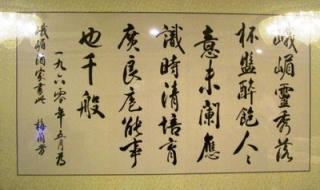 峨嵋靈秀落
杯盤醉飽人々
意未闌應
識時清培育
廣良庖能事
也千般
一九六〇年五月為
峨嵋酒家書此 梅蘭芳